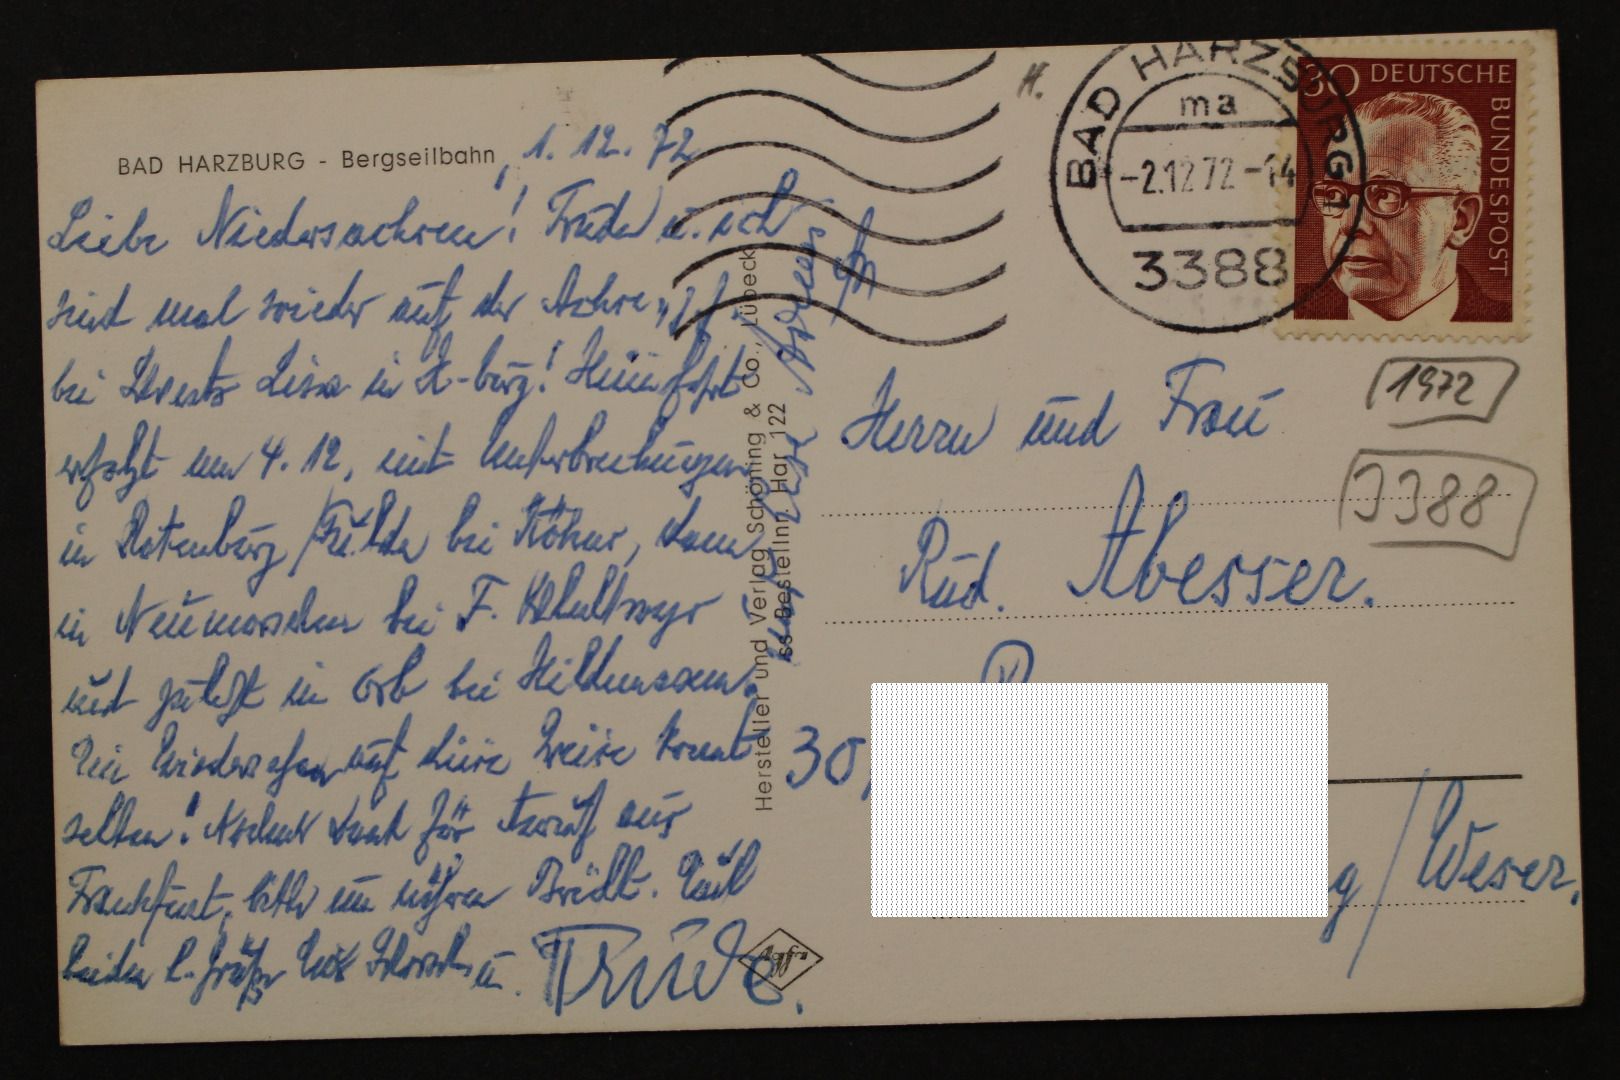 BAD HARZBURG - Bergseilbahn, 1.12.72
Liebe Niedersachsen! Trude u. ich
sind mal wieder auf der Achse
bei Lisa in H-burg! Heimfahrt
erfolgt am 4.12, mit Unterbrechungen
in Rotenburg/Fulda bei Köhler, dann
in Neumorschen bei F.
und zuletzt in Orb bei
Ein Wiedersehen auf diese Weise kommt
selten! Dank für Anruf aus
Frankfurt, bitte um Bericht. Euch
beiden h. Grüße u. TRUDE.
Hersteller und Verlag Schöning & Co., Lübeck
ss Bestellnr. Har 122
Agfa
BAD HARZBURG 1
ma
-2.12.72-14
3388
30 DEUTSCHE BUNDESPOST
H.
1972
3388
Herrn und Frau
Rud. Abesser.
30
g/Weser.